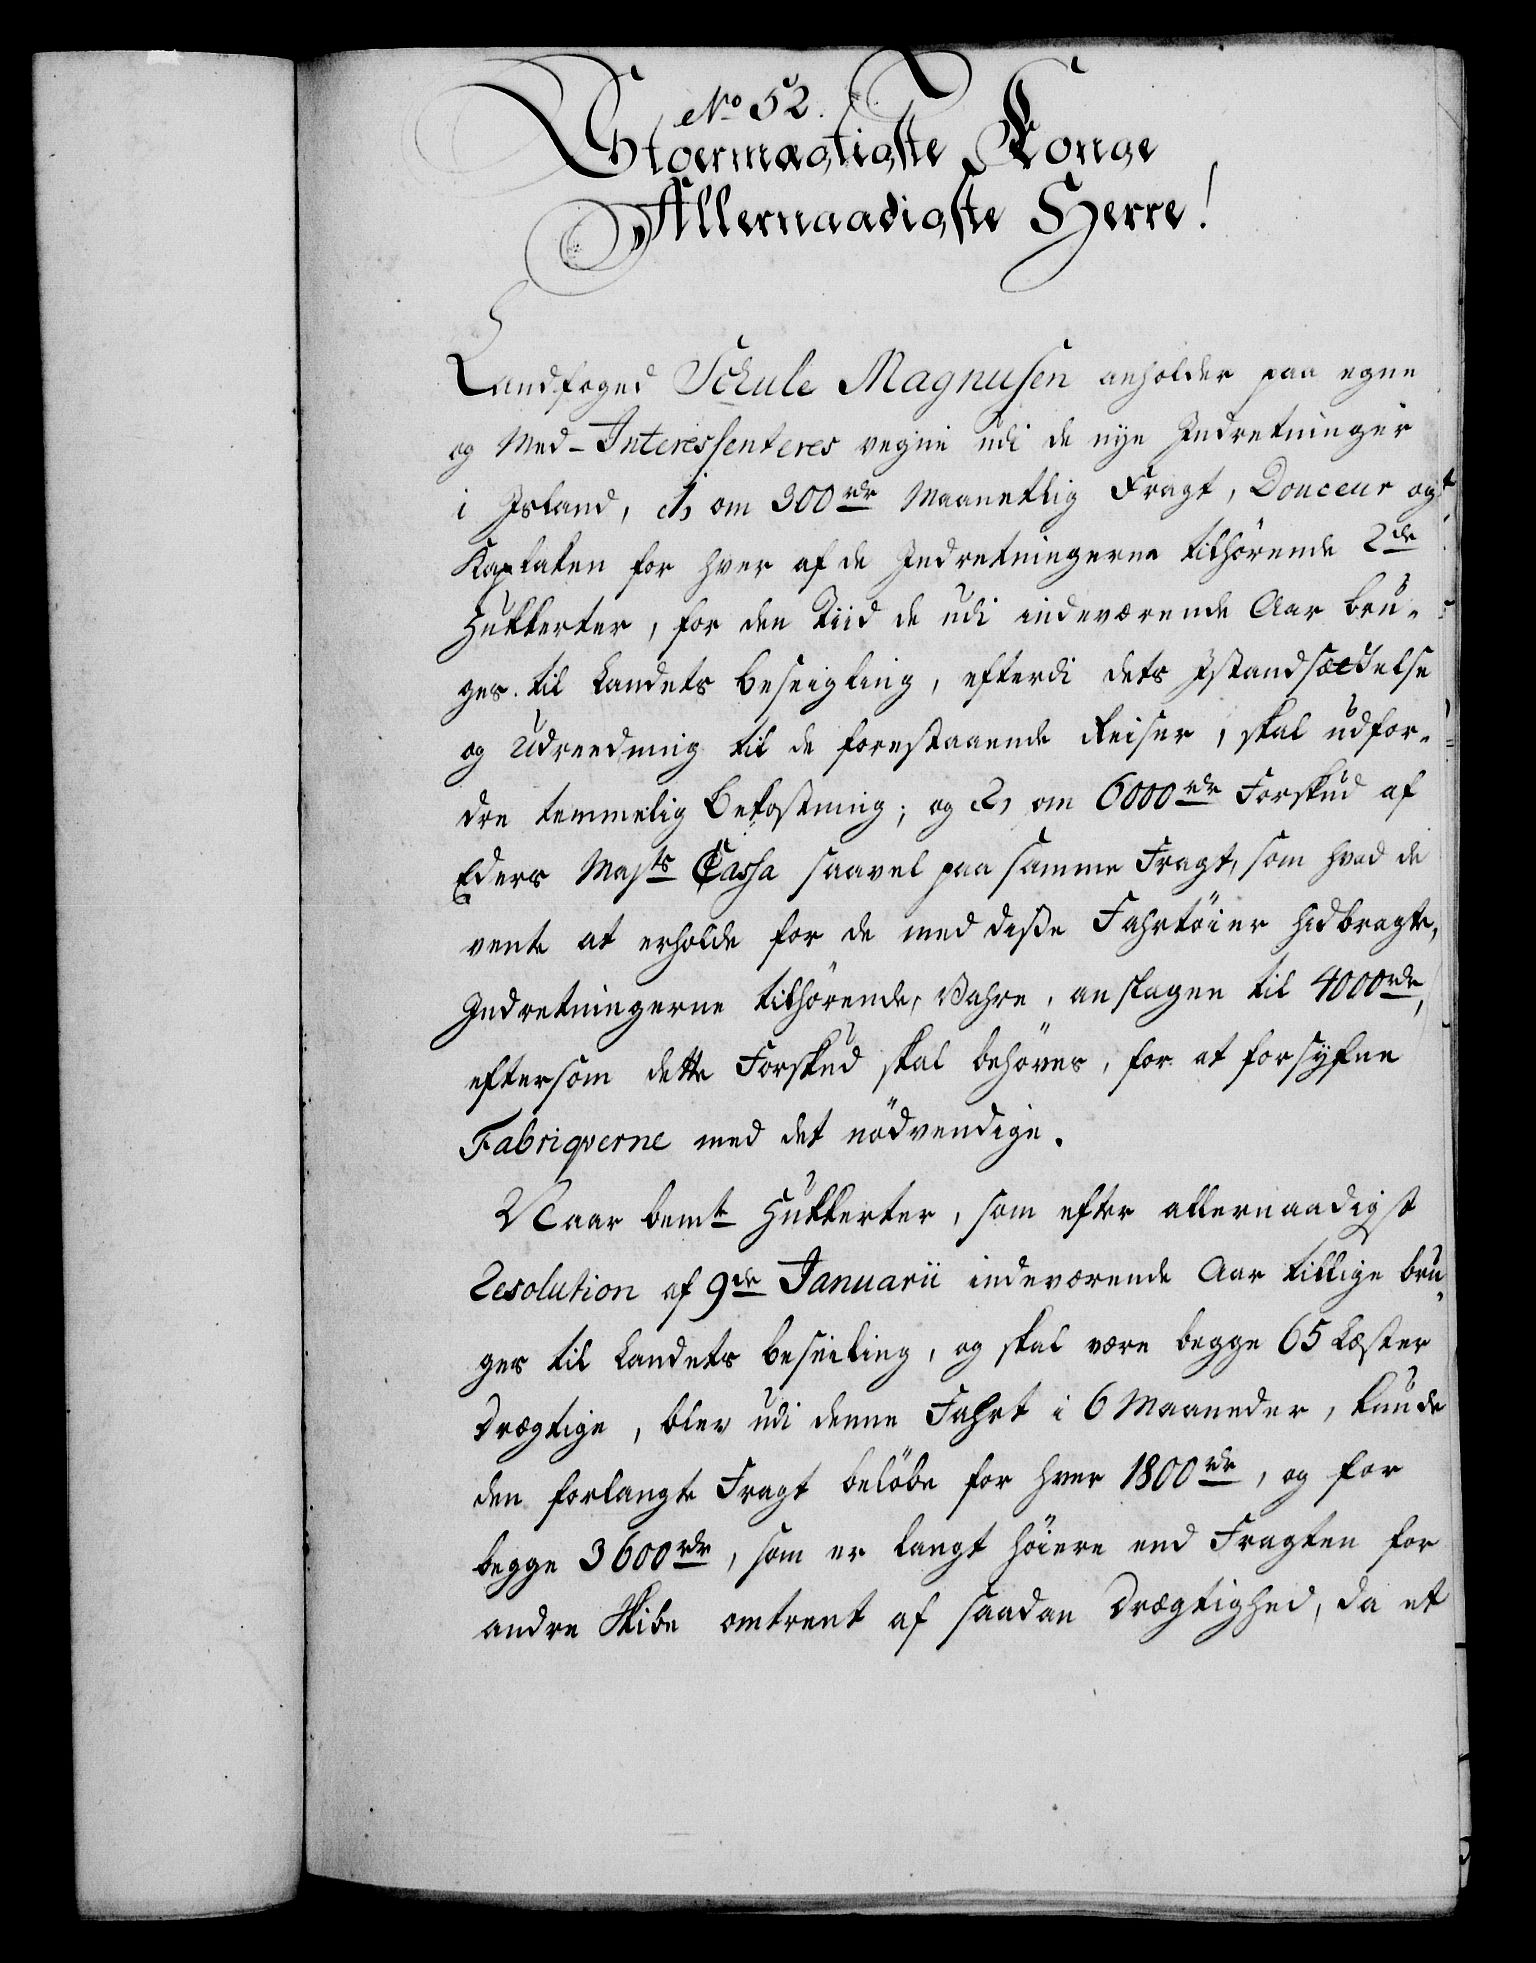 No 52.
Stormægtigste Konge
Allernaadigste Herre!
Landfoged Schule Magnusen anholder paa egne
og Med-Interessenteres vegne udi de nye Indretninger
i Island, 1, om 300 rdr Maanetlig Fragt, Douceur og
Kaplaken for hver af de Indretningerne tilhörende 2de
Hukkerter, for den Tiid de udi indeværende Aar bru-
ges til Landets Beseigling, efterdi dets Istandsættelse
og Udreedning til de forestaaende Reiser, skal udfor-
dre temmelig Bekostning; og 2, om 6000 rdr Forskud af
Eders Majts Cassa saavel paa samme Fragt, som hvad de
vente at erholde for de med disse Fahrtöier hidbragte,
Indretningerne tilhörende, Vahre, anslagen til 4000 rdr,
eftersom dette Forskud skal behöves, for at forsyfne
Fabriqverne med det nödvendige.
Naar bemte Hukkerter, som efter allernaadigst
Resolution af 9de Januarii indeværende Aar tillige bru-
ges til Landets beseiling, og skal være begge 65 Læster
drægtige, blev udi denne Fahrt i 6 Maaneder, kunde
den forlangte Fragt belöbe for hver 1800 rdr, og for
begge 3600 rdr, som er langt höiere end Fragten for
andre Skibe omtrent af saadan Drægtighed, da et